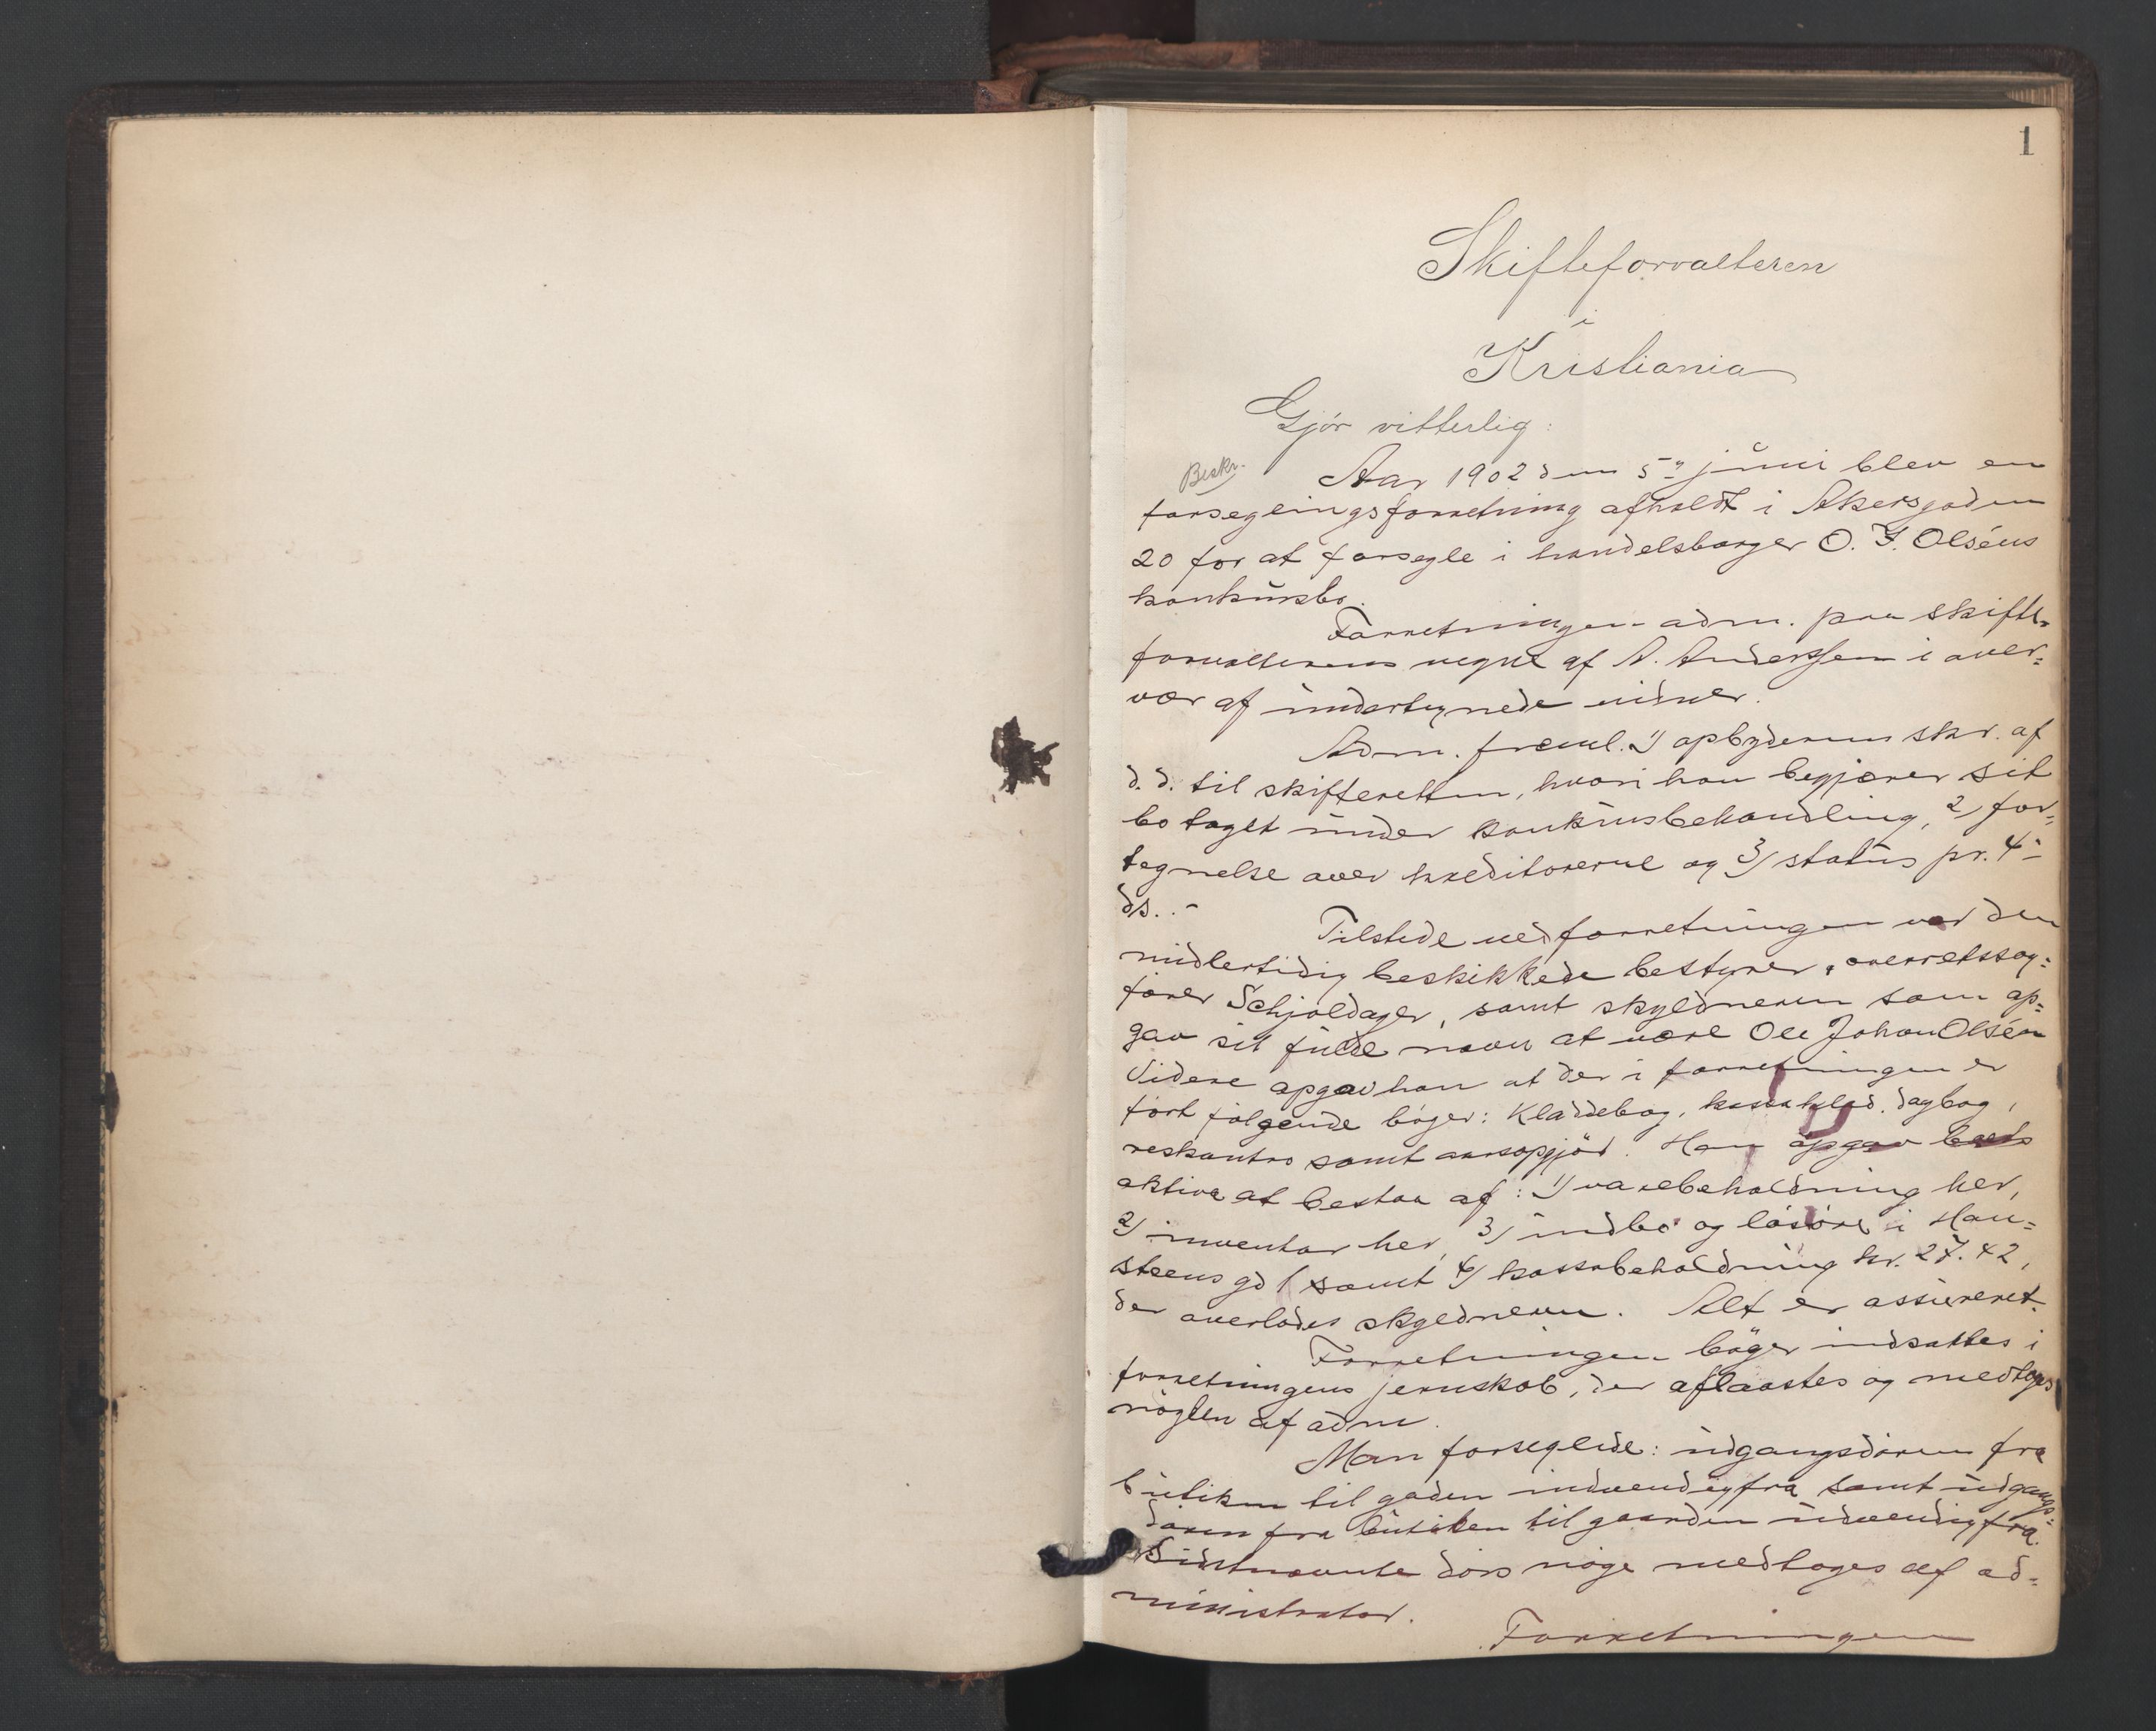 1
Skifteforvalteren
i
Kristiania
Gjör vitterlig:
Beskr.
Aar 1902 den 5te juni blev en
forseglingsforretning afholdt i Akersgaden
20 for at forsegle i handelsborger O. J. Olséns
konkursbo.
Forretningen adm. paa skifte-
forvalterens vegne af A. Anderssen i over=
vær af undertegnede vidner.
Adm. freml. 1) opbyderens skr. af
d.d. til skifteretten, hvori han begjærer sit
bo taget under konkursbehandling, 2) for=
tegnelse over kreditorerne og 3) status pr. 4de
ds. -
Tilstede ved forretningen var den
midlertidig beskikkede bestyrer, overretssag=
förer Schjoldager, samt skyldneren som op=
gav sit fulde navn at være Ole Johan Olsén
Videre opgav han at der i forretningen er
fört fölgende böger: Kladdebog, kassaklad. dagbog,
reskontro samt aarsopgjör. Han opgav boets
aktiva at bestaa af: 1) varebeholdning her,
2) inventar her, 3) indbo og lösöre i Han=
steens gd 1 samt 4) kassabeholdning kr. 27.42,
der overlodes skyldneren. Alt er assureret.
Forretningen böger indsattes i
forretningens jernskab, der aflaastes og medtoges
nöglen af adm.
Man forseglede: udgangsdören fra
butiken til gaden indvendigfra samt udgangs=
dören fra butiken til gaarden udvendigfra.
Sidstnævnte dörs nögle medtoges af ad=
ministrator.
Forretningen